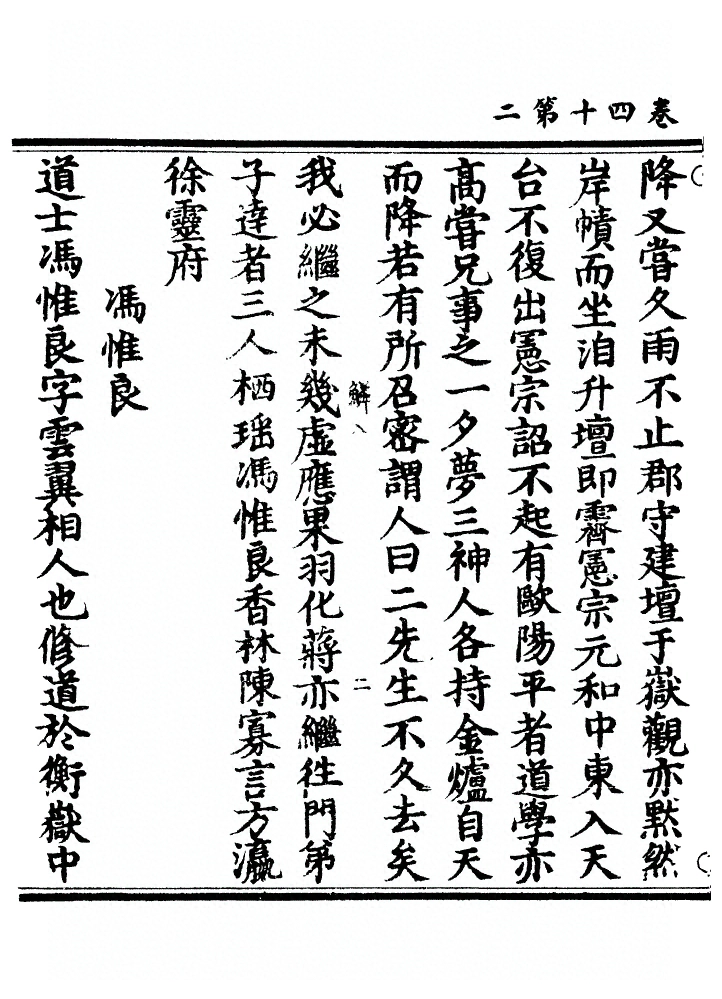 卷四十第二
降又嘗久雨不止郡守建壇于嶽觀亦默然
岸幘而坐洎升壇即霽憲宗元和中東入天
台不復出憲宗詔不起有歐陽平者道學亦
高嘗兄事之一夕夢三神人各持金爐自天
而降若有所召密謂人曰二先生不久去矣
鱗八
二
我必繼之未幾虛應果羽化蔣亦繼往門第
子達者三人栖瑶馮惟良香林陳寡言方瀛
徐靈府
馮惟良
道士馮惟良字雲翼相人也修道於衡嶽中